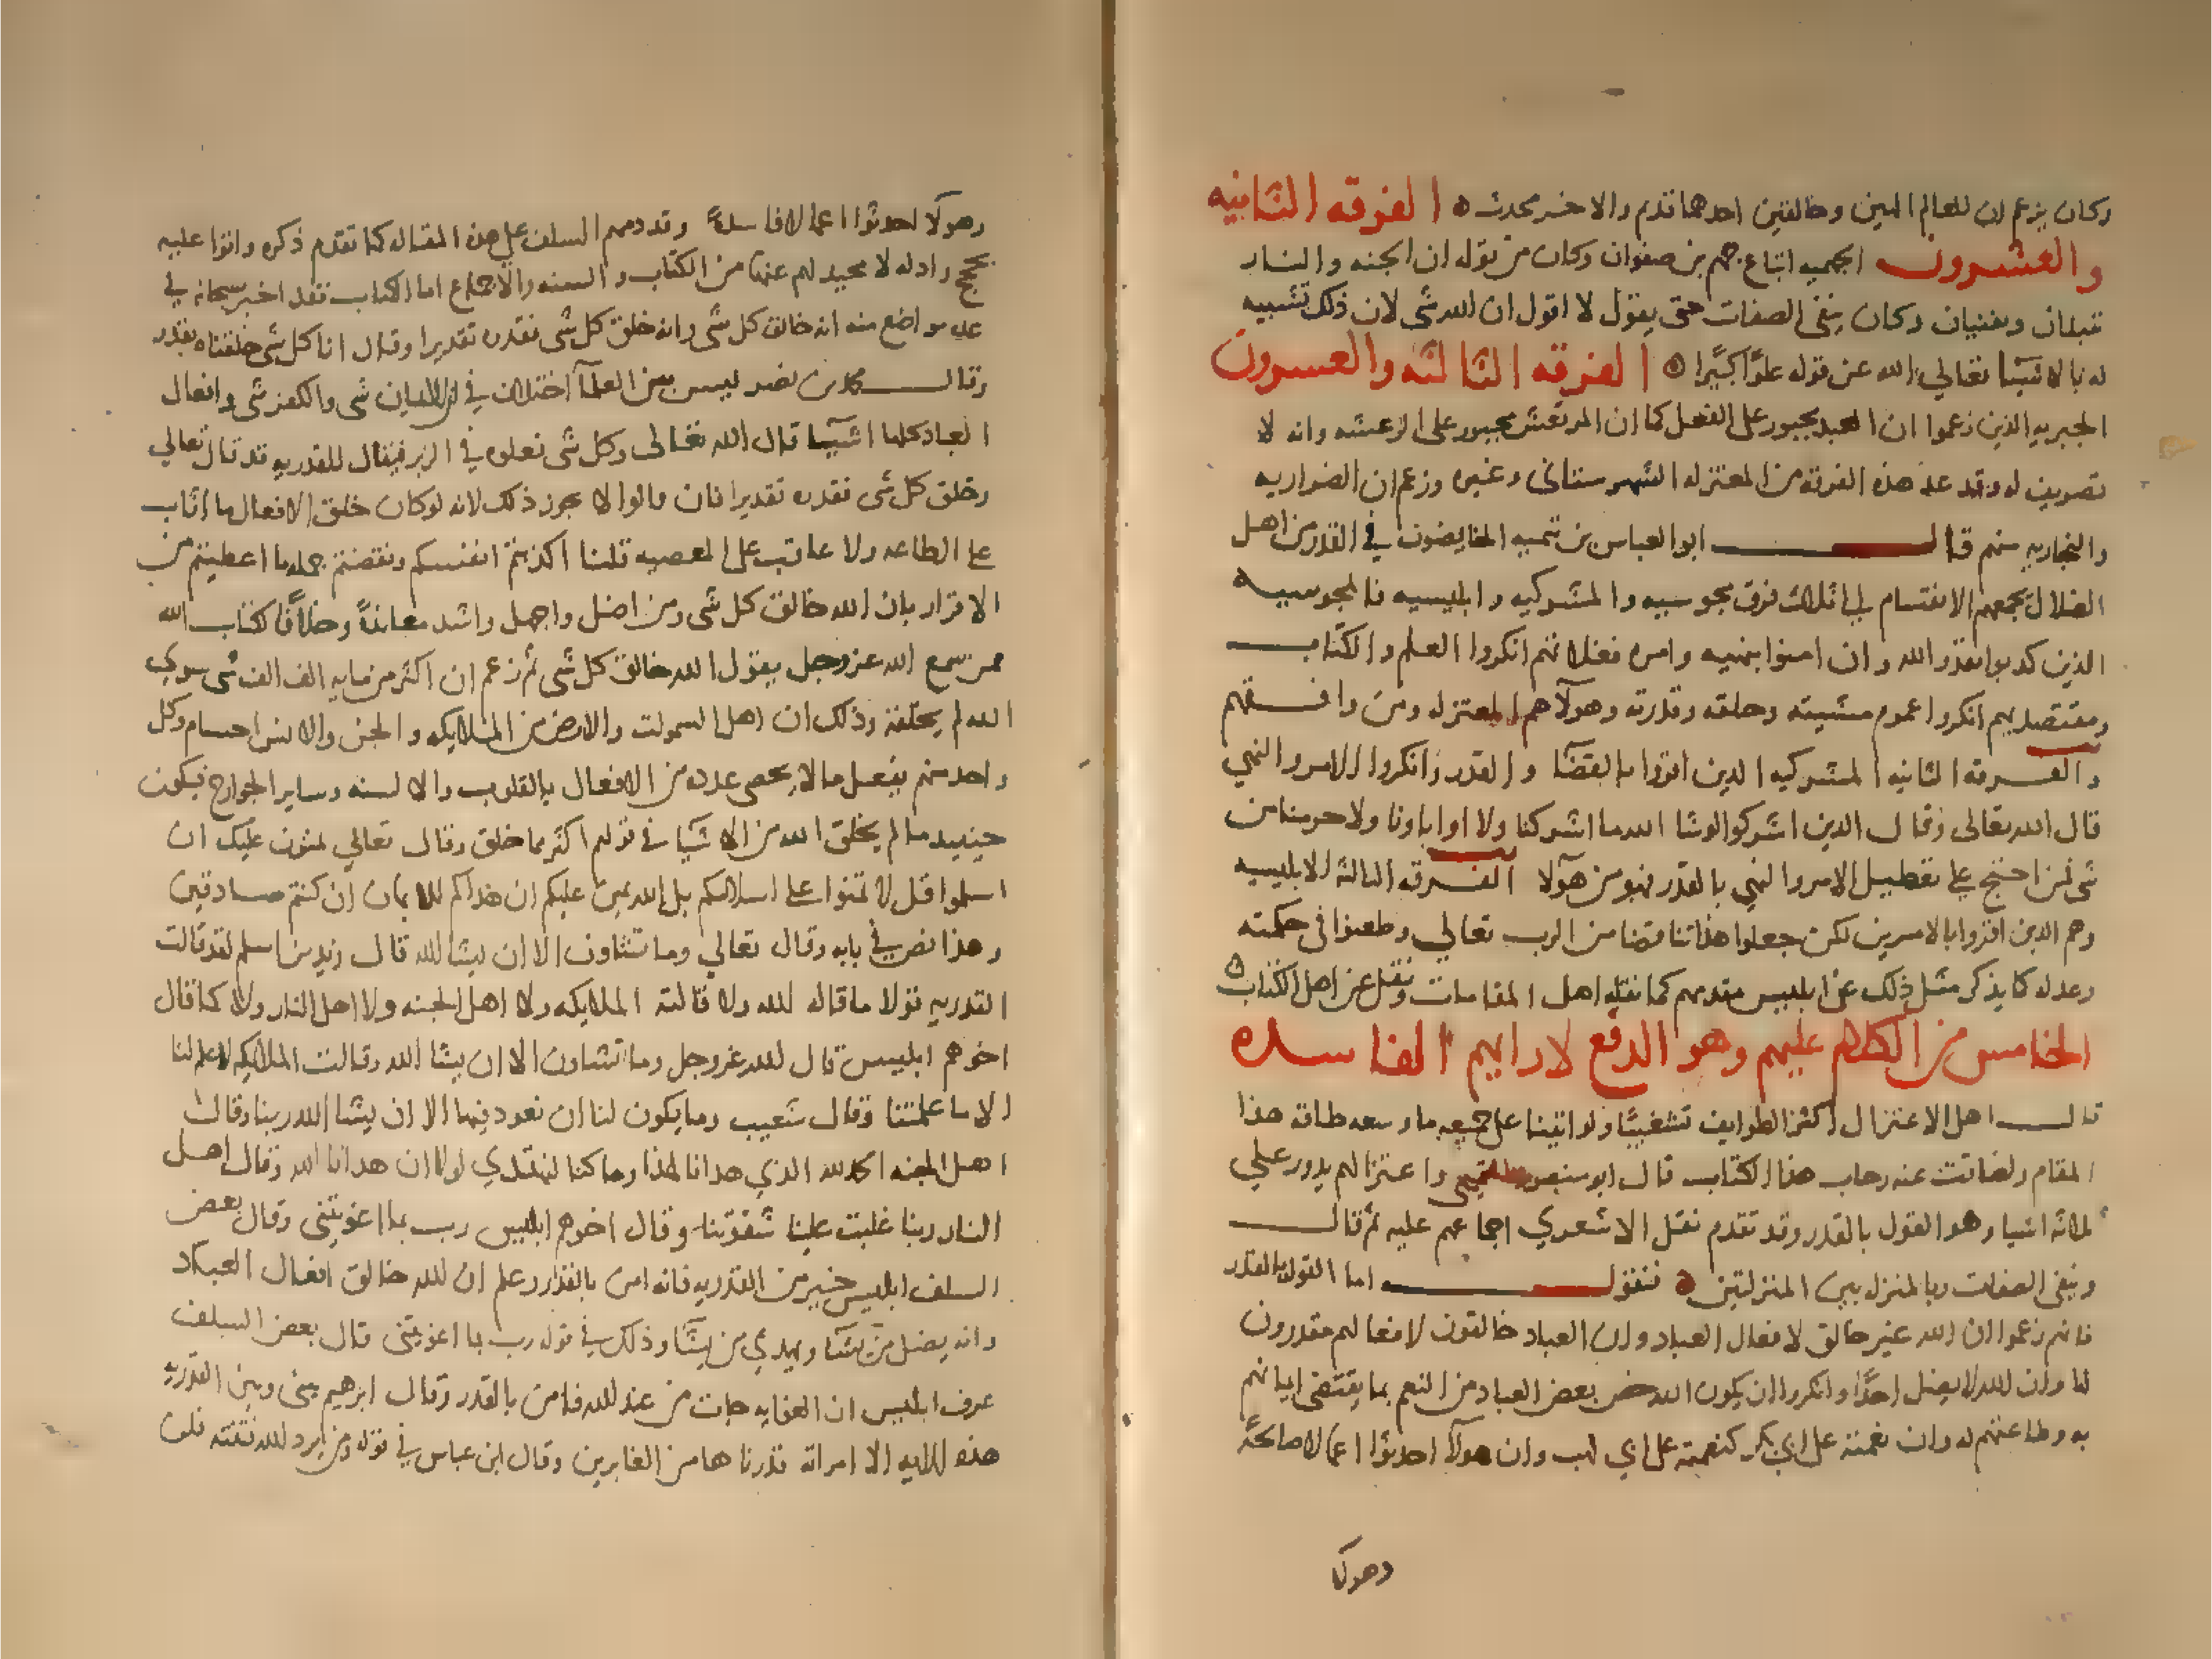 وكان يزعم ان للعالم الهين وخالقين احدهما قديم والاخر محدث ه الفرقه الثانيه
والعشرون الجهميه اتباع جهم بن صفوان وكان من قوله ان الجنه والنار
تبيدان وتفنيان وكان ينفي الصفات حتى يقول لا اقول ان الله شي لان ذلك تشبيه
له بالاشيا تعالي الله عن قوله علوًا كبيرًا ه الفرقه الثالثه والعسرون
الجبريه الذين زعموا ان العبد مجبور على الفعل كما ان المرتعش مجبور على الرعشه وانه لا
تصريف له وقد عد هذه الفرقه من المعتزله الشهرستاني وغيره وزعم ان الضراريه
والنجاريه منهم قال ابو العباس بن تيميه الخايضون في القدر من اهل
الضلال يجمعهم الانقسام الي ثلاث فرق مجوسيه والمشركيه وابليسيه فالمجوسيه
الذين كذبوا بقدر الله وان امنوا بنهيه وامره فغلاتهم انكروا العلم والكتاب
ومقتصديهم انكروا عموم مشيته وخلقه وقدرته وهولآ هم المعتزله ومن وافقهم
والفرقه الثانيه المشركيه الذين اقروا بالقضا والقدر وانكروا الامر والنهي
قال الله تعالى وقال الذين اشركوا لوشا الله ما اشركنا ولا اباونا ولا حرمنا من
شي فمن احتج على تعطيل الامر والنهي بالقدر فهو من هولا الفرقه الثالثه الابليسيه
وهم الذين اقروا بالامرين لكن جعلوا هذا تناقضا من الرب تعالي وطعنوا في حكمته
وعدله كما يذكر مثل ذلك عن ابليس مقدمهم كما نقله اهل المقامات ونقل عن اهل الكتاب ه
الخامس من الكلام عليهم وهو الدفع لارايهم الفاسده
قال اهل الاعتزال اكثر الطوايف تشغيبًا ولو اتينا على جميعه ما وسعه طاقه هذا
المقام ولضاقت عنه رحاب هذا الكتاب قال ابو منصور واعتزالهم يدور على
ثلاثه اشيا وهو القول بالقدر وقد تقدم نقل الاشعري اجماعهم عليه ثم قال
ونفي الصفات وبالمنزله بين المنزلتين ه فنقول اما القول بالقدر
فانهم زعموا ان الله غير خالق لافعال العباد وان العباد خالقون لافعالهم مقدرون
لها وان الله لا يضل احدًا وانكروا ان يكون الله خص بعض العباد من النعم بما يقتضي ايمانهم
به وطاعتهم له وان نعمته على ابي بكر كنعمته على ابي لهب وان هولآ احدثوا اعمالا صالحةً
وهولا
وهولآ احدثوا اعمالا فاسدةً وقد ذمهم السلف على هذه المقاله كما تقدم ذكره واتوا عليه
بحجج وادله لا محيد لهم عنها من الكتاب والسنه والاجماع اما الكتاب فقد اخبر سبحانه في
عده مواضع منه انه خالق كل شي وانه خلق كل شي فقدره تقديرا وقال انا كل شي خلقناه بقدر
وقال محمد بن نصر ليس بين العلمآ اختلاف في ان الايمان شي والكفر شي وافعال
العباد كلها اشيآ قال الله تعالى وكل شي فعلوه في الزبر فيقال للقدريه قد قال تعالي
وخلق كل شي فقدره تقديرا فان قالوا لا يجوز ذلك لانه لو كان خلق الافعال ما اثاب
على الطاعه ولا عاقب على المعصيه قلنا اكذبتم انفسكم ونقضتم جمله ما اعطيتم من
الاقرار بان الله خالق كل شي ومن اضل واجهل واشد معاندةً وخلافًا لكتاب الله
ممن سمع الله عز وجل يقول الله خالق كل شي ثم زعم ان اكثر من مايه الف الف شي سوي
الله لم يخلقه وذلك ان اهل السموات والارض من الملايكه والجن والانس اجسام وكل
واحد منهم يفعل ما لا يحصى عدده من الافعال بالقلوب والالسنه وساير الجوارح فيكون
حينيد ما لم يخلق الله من الاشيا في قولهم اكثر مما خلق وقال تعالي يمنون عليك ان
اسلموا قل لا تمنوا على اسلامكم بل الله يمن عليكم ان هداكم للايمان ان كنتم صادقين
وهذا نص في بابه وقال تعالي وما تشاون الا ان يشا الله قال زيد بن اسلم لقد قالت
القدريه قولا ما قاله الله ولا قالته الملايكه ولا اهل الجنه ولا اهل النار ولا كما قال
اخوهم ابليس قال الله عز وجل وما تشاون الا ان يشا الله وقالت الملايكه لا علم لنا
الا ما علمتنا وقال شعيب وما يكون لنا ان نعود فيها الا ان يشا الله ربنا وقال
اهل الجنه الحمد لله الذي هدانا لهذا وما كنا لنهتدي لولا ان هدانا الله وقال اهل
النار ربنا غلبت علينا شقوتنا وقال اخوهم ابليس رب بما اغويتني وقال بعض
السلف ابليس خير من القدريه فانه امن بالقدر وعلم ان الله خالق افعال العباد
وانه يضل من يشآ ويهدي من يشآ وذلك في قوله رب بما اغويتني قال بعض السلف
عرف ابليس ان الغوايه جات من عند الله فامن بالقدر وقال ابرهيم بيني وبين القدريه
هذه الايه الا امراته قدرناها من الغابرين وقال ابن عباس في قوله ومن يرد الله فتنته فلن